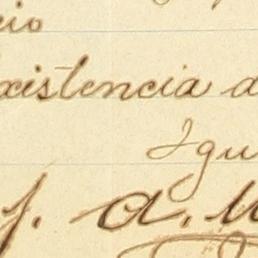 cio
xistencia d
Igu
f. a. U